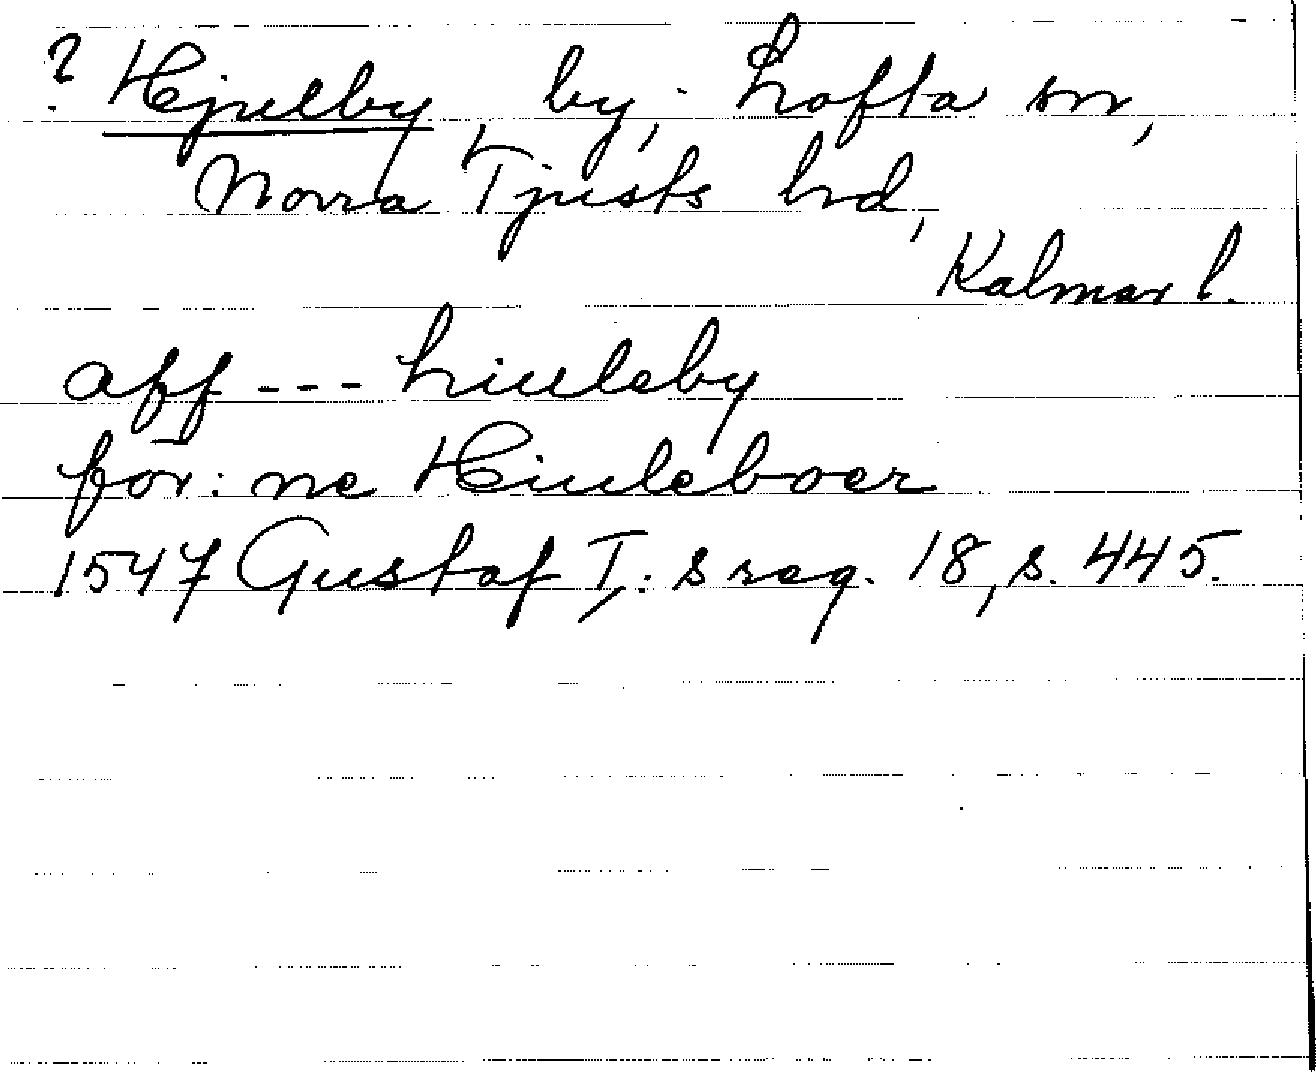 ? Hjulby, by, Lofta sn,
Norra Tjusts hd,
Kalmar l.
aff --- hiuleby
för: ne Hiuleboer
1547 Gustaf I:s reg. 18, s. 445.